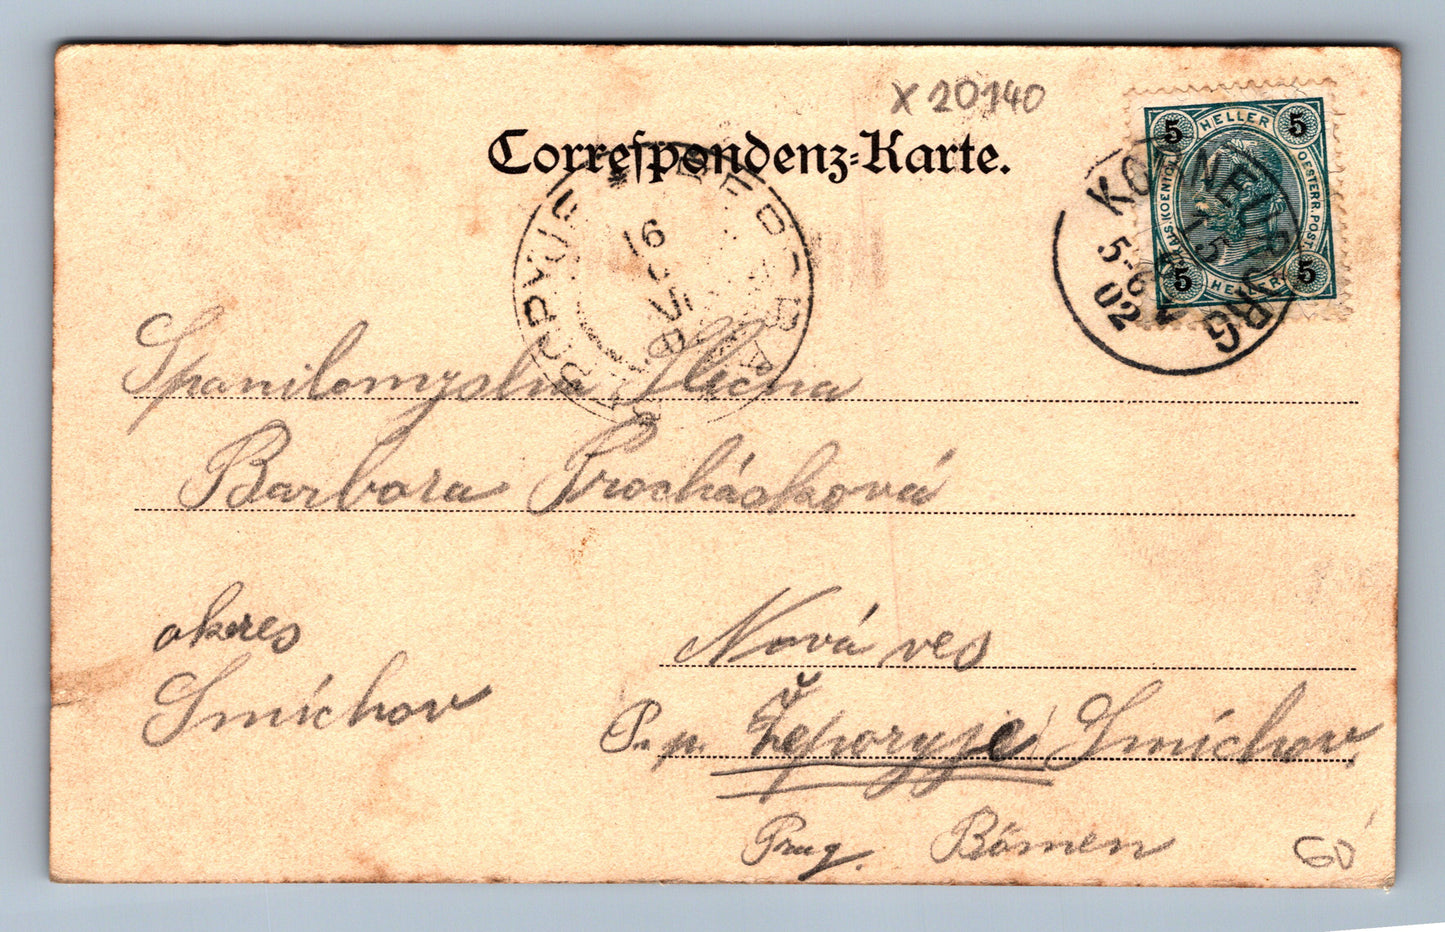 X 20140
Correspondenz-Karte.
5 HELLER 5
KAIS. KOENIGL. OESTERR. POST.
5 HELLER 5
KORNEUBURG
15
5-6
02
16
VI
Spanilomyslna Slečna
Barbora Procházková
okres
Smíchov
Nová ves
P. p. Žeporyje Smíchov
Prag. Bömen
60